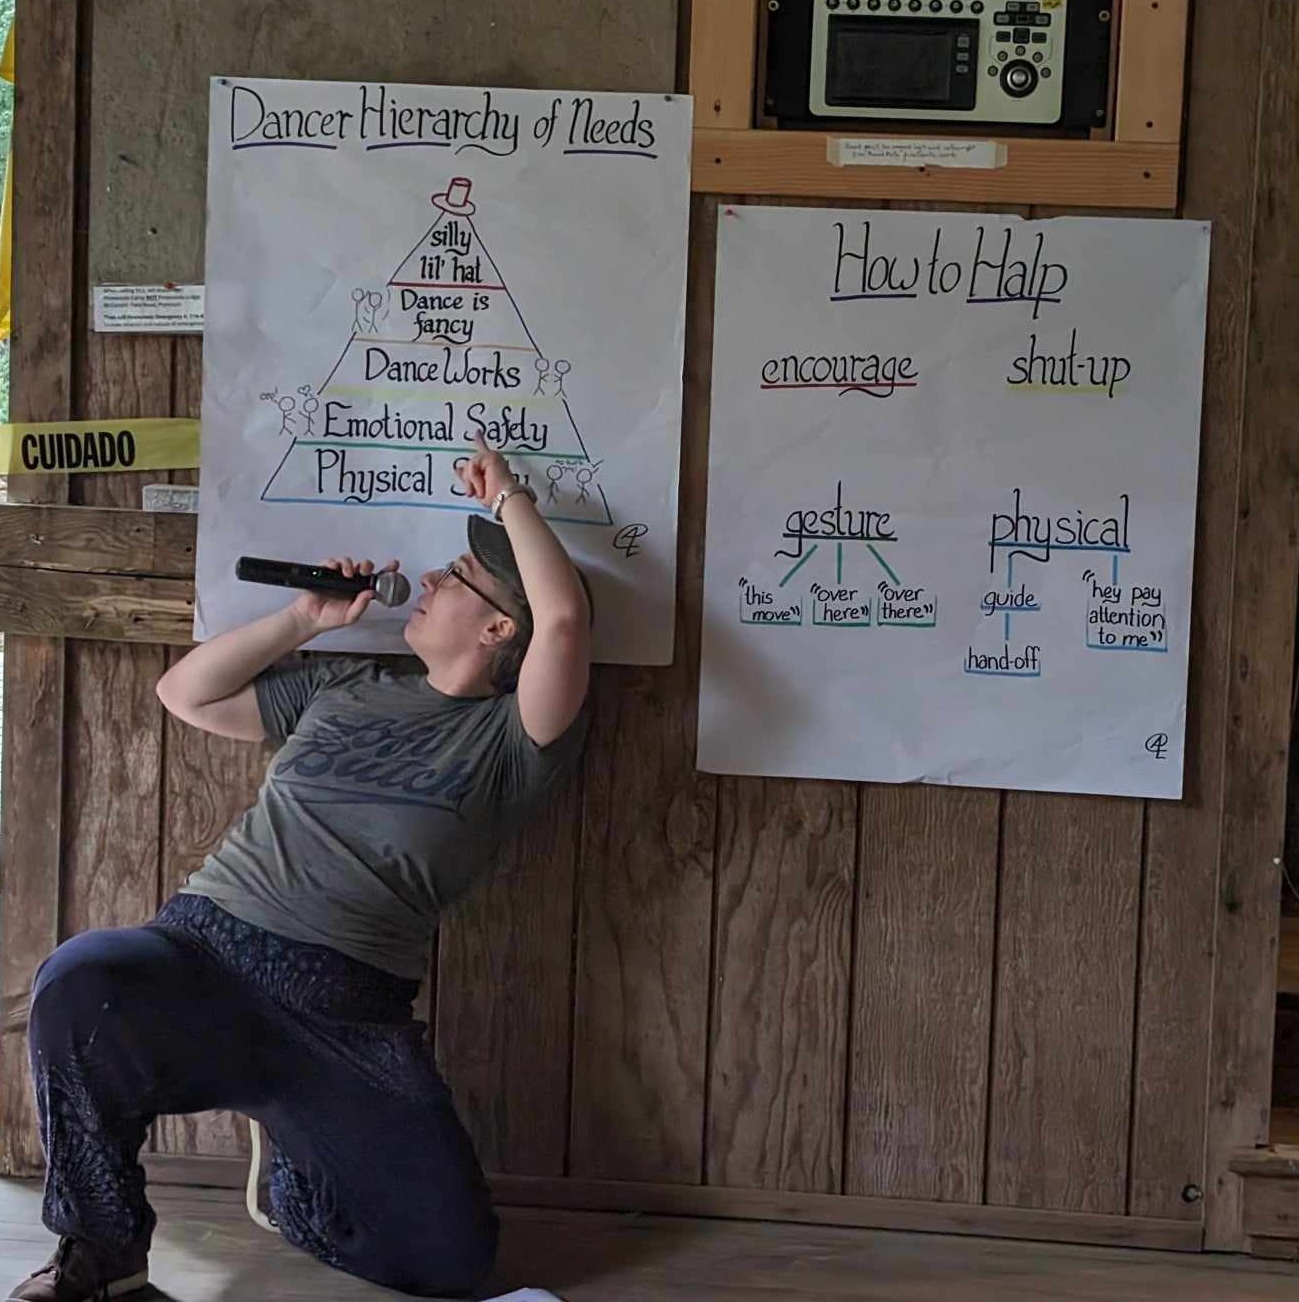 Dancer Hierarchy of Needs
silly
lil' hat
Dance is
fancy
Dance Works
Emotional Safety
Physical
How to Halp
encourage
shut-up
gesture
"this
move"
"over
here"
"over
there"
physical
guide
hand-off
"hey pay
attention
to me"
CUIDADO
Butch